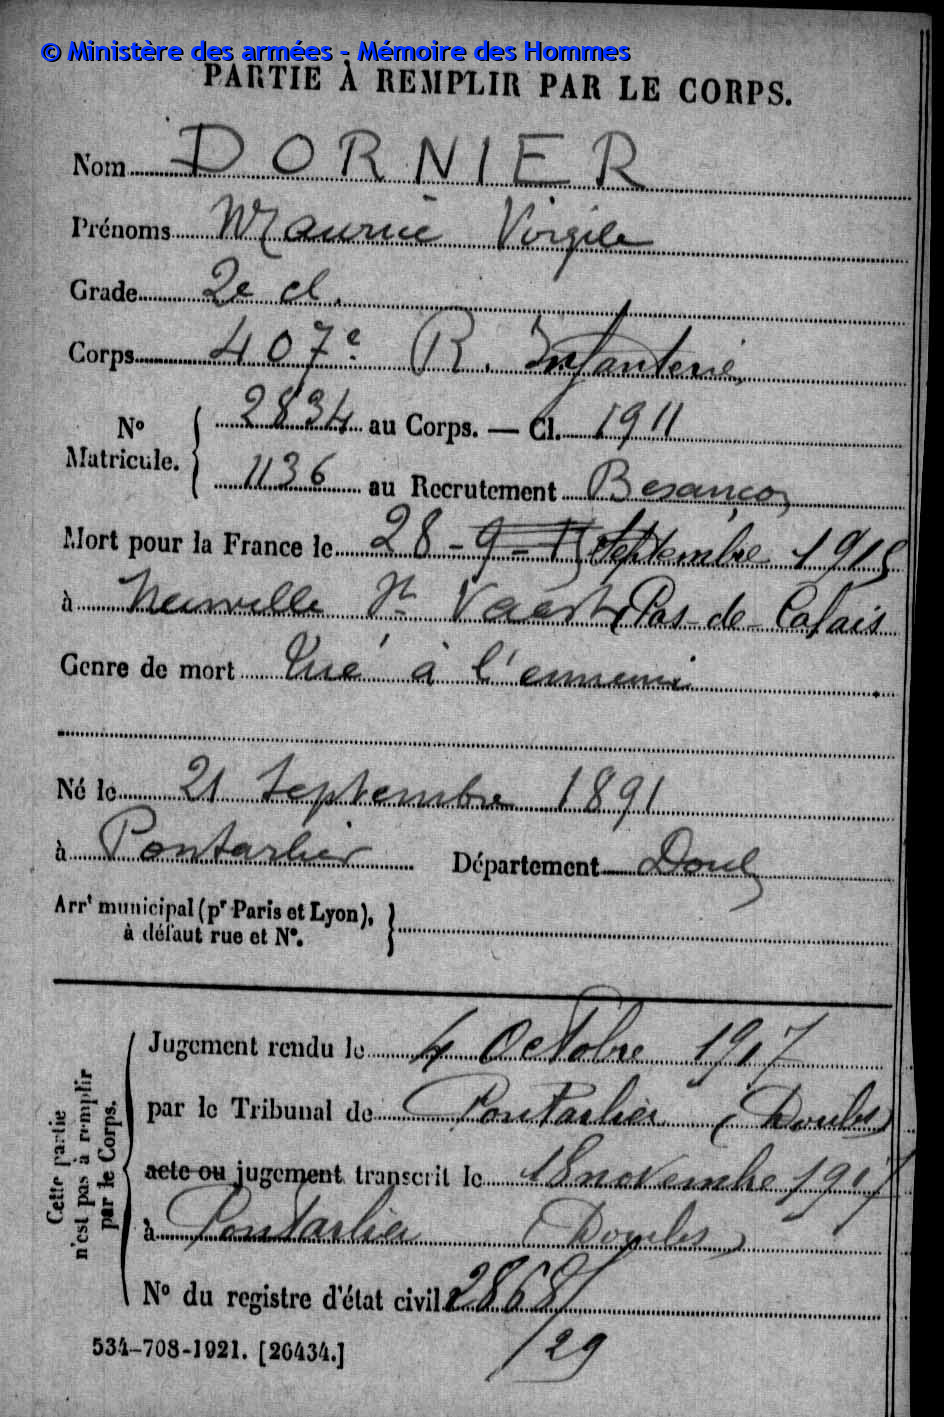 © Ministère des armées - Mémoire des Hommes
PARTIE À REMPLIR PAR LE CORPS.
Nom DORNIER
Prénoms Maurice Virgile
Grade 2e cl.
Corps 407e R. Infanterie
No Matricule. 2834 au Corps. — Cl. 1911
1136 au Recrutement Besançon
Mort pour la France le 28 - 9 - 15 Septembre 1915
à Neuville St Vaast (Pas-de-Calais
Genre de mort Tué à l'ennemi
Né le 21 Septembre 1891
à Pontarlier Département Doubs
Arrt municipal (pr Paris et Lyon), à défaut rue et No.
Cette partie n'est pas à remplir par le Corps.
Jugement rendu le 4 Octobre 1917
par le Tribunal de Pontarlier (Doubs)
acte ou jugement transcrit le 18 novembre 1917
à Pontarlier (Doubs)
No du registre d'état civil 2868/29
534-708-1921. [26434.]